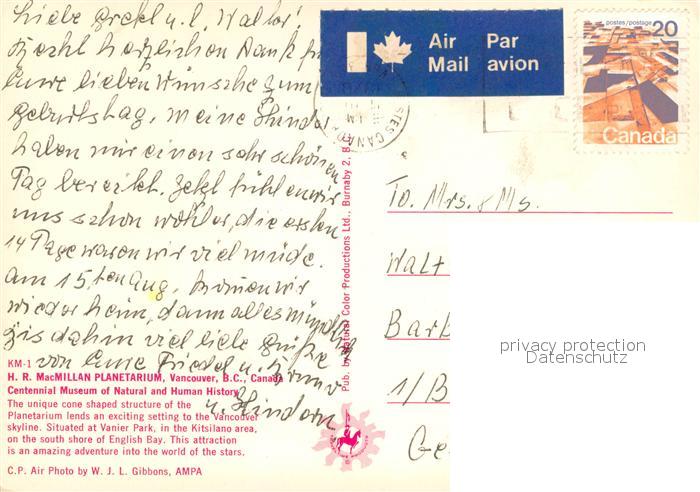 Liebe Gretel u. l. Walter!
Herzlichen Dank für
Eure lieben Wünsche zum
Geburtstag, meine Kinder
haben mir einen sehr schönen
Tag bereitet. Jetzt fühlen wir
uns schon wohler, die ersten
14 Tage waren wir viel müde.
am 15.ten Aug. kommen wir
wieder heim, dann alles mündlich
Bis dahin viel liebe Grüße
von Eure Friedel u.
u. Kindern
Air Par
Mail avion
postes/postage 20
Canada
To. Mrs. & Ms.
Walt
Barb
1/B
Ge
privacy protection
Datenschutz
Pub. by Natural Color Productions Ltd., Burnaby 2, B.C.
KM-1
H. R. MacMILLAN PLANETARIUM, Vancouver, B.C., Canada
Centennial Museum of Natural and Human History
The unique cone shaped structure of the
Planetarium lends an exciting setting to the Vancouver
skyline. Situated at Vanier Park, in the Kitsilano area,
on the south shore of English Bay. This attraction
is an amazing adventure into the world of the stars.
C.P. Air Photo by W. J. L. Gibbons, AMPA